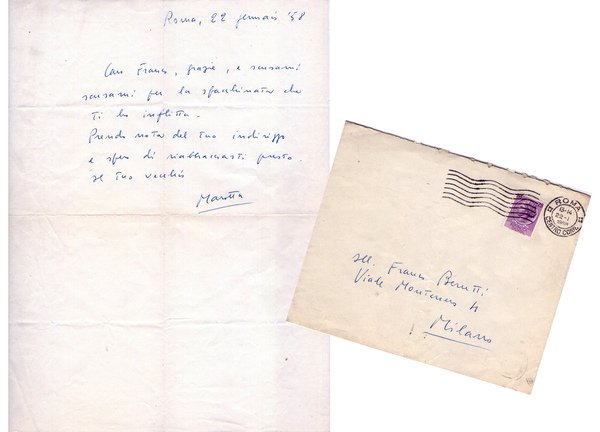 Roma, 22 gennaio '58
Caro Franco, grazie, e scusami
scusami per la sfacchinata che
ti ho inflitta.
Prendo nota del tuo indirizzo
e spero di riabbracciarti presto.
Il tuo vecchio
Marotta
ROMA
CENTRO CORR.
Franco Berutti
Viale Montenero 4
Milano